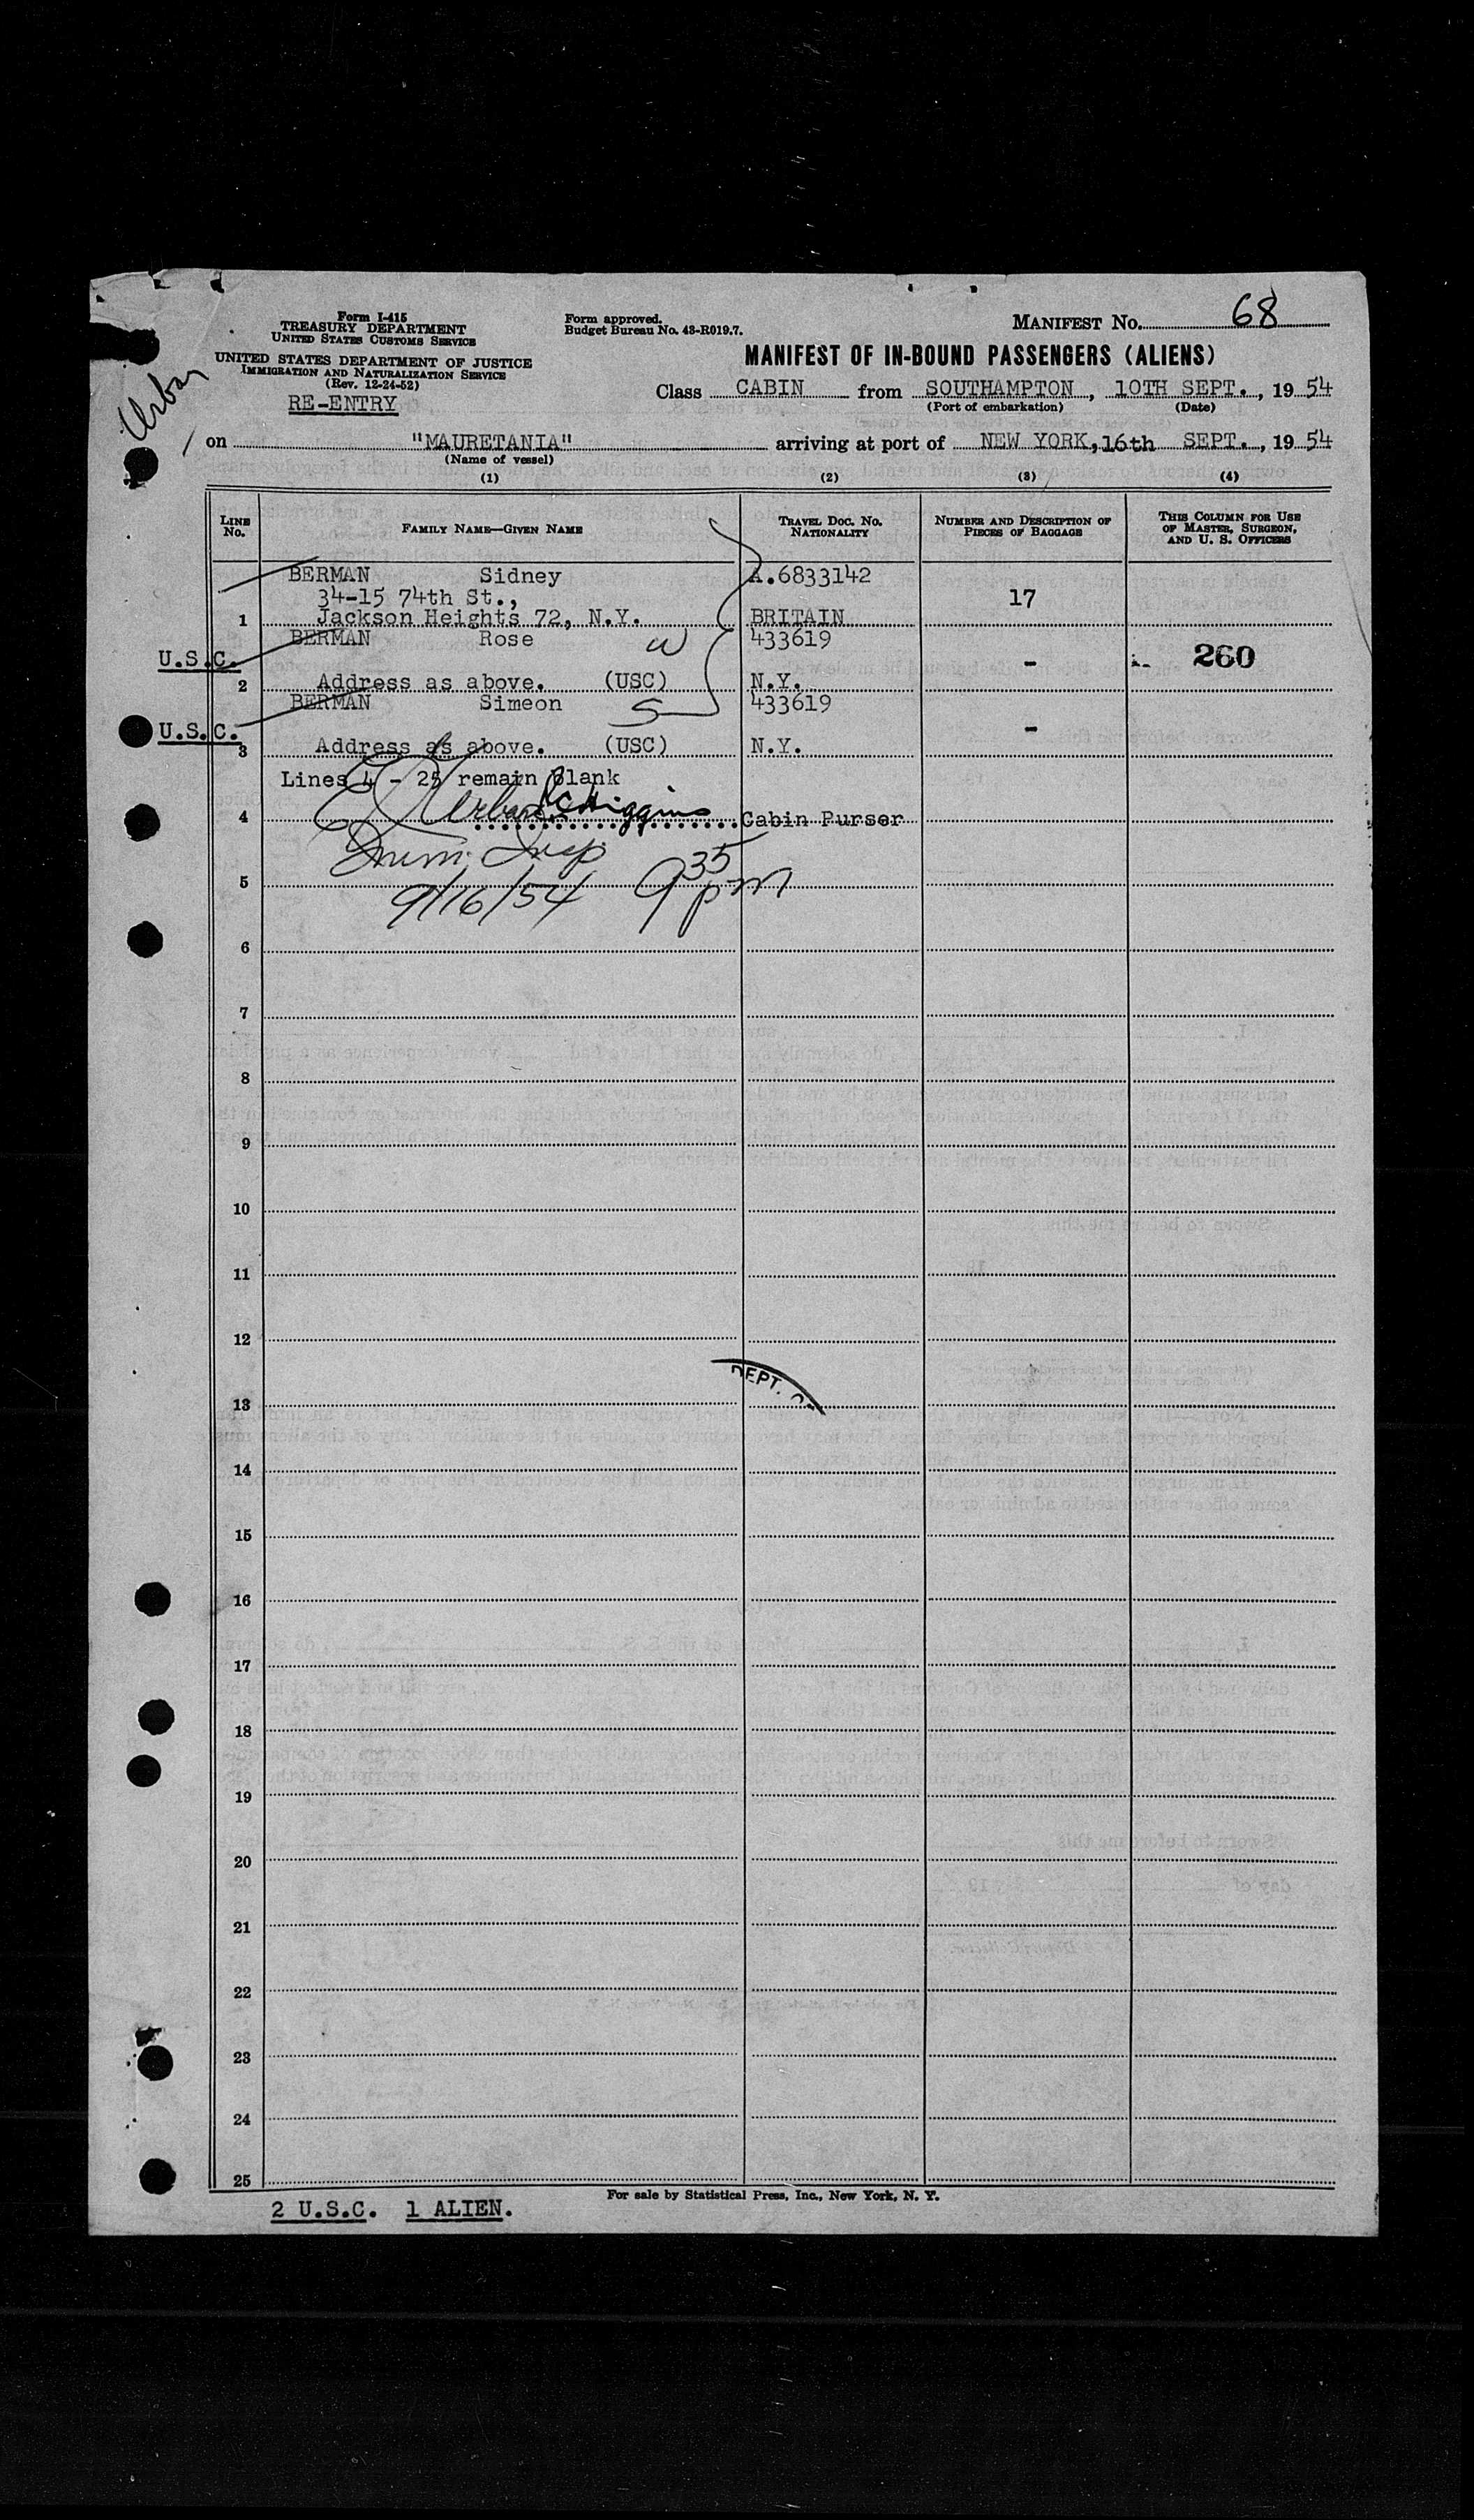 Form I-415
TREASURY DEPARTMENT
UNITED STATES CUSTOMS SERVICE
UNITED STATES DEPARTMENT OF JUSTICE
IMMIGRATION AND NATURALIZATION SERVICE
(Rev. 12-24-52)
RE-ENTRY
Form approved.
Budget Bureau No. 43-R019.7.
MANIFEST No. 68
MANIFEST OF IN-BOUND PASSENGERS (ALIENS)
Class CABIN from SOUTHAMPTON, 10TH SEPT., 1954
(Port of embarkation) (Date)
Urban
on "MAURETANIA" arriving at port of NEW YORK, 16th SEPT., 1954
(Name of vessel)
(1) (2) (3) (4)
LINE No. FAMILY NAME—GIVEN NAME TRAVEL DOC. NO. NATIONALITY NUMBER AND DESCRIPTION OF PIECES OF BAGGAGE THIS COLUMN FOR USE OF MASTER, SURGEON, AND U. S. OFFICERS
BERMAN Sidney A.6833142
34-15 74th St., 17
1 Jackson Heights 72, N.Y. BRITAIN
BERMAN Rose W 433619
U.S.C. - 260
2 Address as above. (USC) N.Y.
BERMAN Simeon S 433619
U.S.C. -
3 Address as above. (USC) N.Y.
Lines 4 - 25 remain blank
4 Urban Higgins Cabin Purser
Imm. Insp
5 9/16/54 9 35 pm
6
7
8
9
10
11
12
DEPT. OF
13
14
15
16
17
18
19
20
21
22
23
24
25
For sale by Statistical Press, Inc., New York, N. Y.
2 U.S.C. 1 ALIEN.